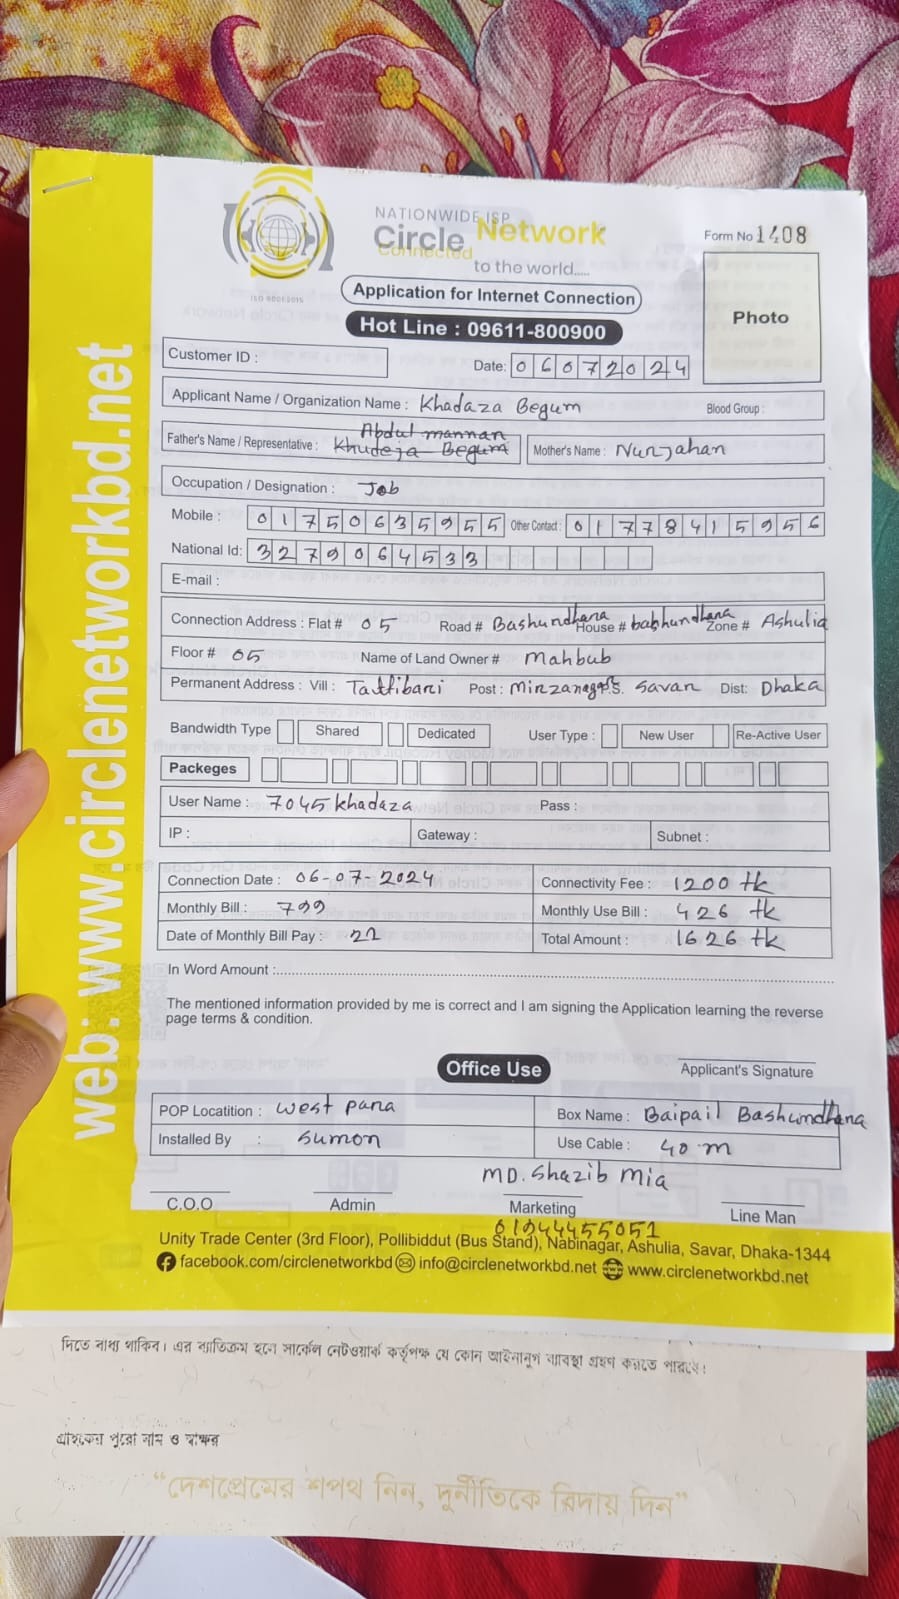 NATIONWIDE ISP
Circle Network
Connected
to the world.....
ISO 9001:2015
Form No 1408
Application for Internet Connection
Photo
Hot Line : 09611-800900
Customer ID :
Date: 06072024
Applicant Name / Organization Name : Khadaza Begum Blood Group :
Abdul mannan
Father's Name / Representative : Khudeja Begum Mother's Name : Nurjahan
Occupation / Designation : Job
Mobile : 01750635955 Other Contact : 01778415956
National Id: 3279064533
E-mail :
Connection Address : Flat # 05 Road # Bashundhana House # bashundhana Zone # Ashulia
Floor # 05 Name of Land Owner # Mahbub
Permanent Address : Vill : Tattibari Post : Mirzanagar P.S. Savar Dist: Dhaka
Bandwidth Type Shared Dedicated User Type : New User Re-Active User
Packeges
User Name : 7045khadaza Pass :
IP : Gateway : Subnet :
Connection Date : 06-07-2024 Connectivity Fee : 1200 tk
Monthly Bill : 799 Monthly Use Bill : 426 tk
Date of Monthly Bill Pay : 22 Total Amount : 1626 tk
In Word Amount :
The mentioned information provided by me is correct and I am signing the Application learning the reverse
page terms & condition.
Office Use
Applicant's Signature
POP Locatition : West para Box Name : Baipail Bashundhana
Installed By : Sumon Use Cable : 40 m
MD. Shazib Mia
C.O.O Admin Marketing Line Man
01944455051
Unity Trade Center (3rd Floor), Pollibiddut (Bus Stand), Nabinagar, Ashulia, Savar, Dhaka-1344
facebook.com/circlenetworkbd info@circlenetworkbd.net www.circlenetworkbd.net
web: www.circlenetworkbd.net
দিতে বাধ্য থাকিব। এর ব্যাতিক্রম হলে সার্কেল নেটওয়ার্ক কর্তৃপক্ষ যে কোন আইনানুগ ব্যাবস্থা গ্রহণ করতে পারবে।
গ্রাহকের পুরো নাম ও স্বাক্ষর
“দেশপ্রেমের শপথ নিন, দুর্নীতিকে বিদায় দিন”